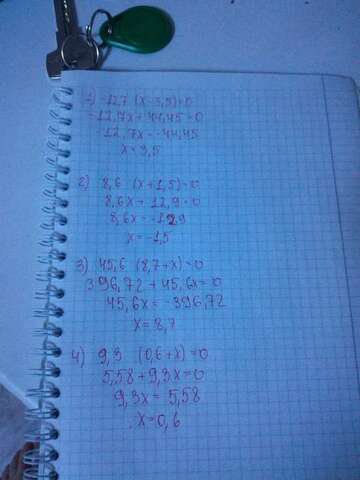 1) -12,7 (x-3,5)=0
-12,7x+44,45=0
-12,7x=-44,45
x=3,5
2) 8,6 (x+1,5)=0
8,6x+12,9=0
8,6x=-12,9
x=-1,5
3) 45,6 (8,7+x)=0
396,72+45,6x=0
45,6x=-396,72
x=8,7
4) 9,3 (0,6+x)=0
5,58+9,3x=0
9,3x=5,58
x=0,6